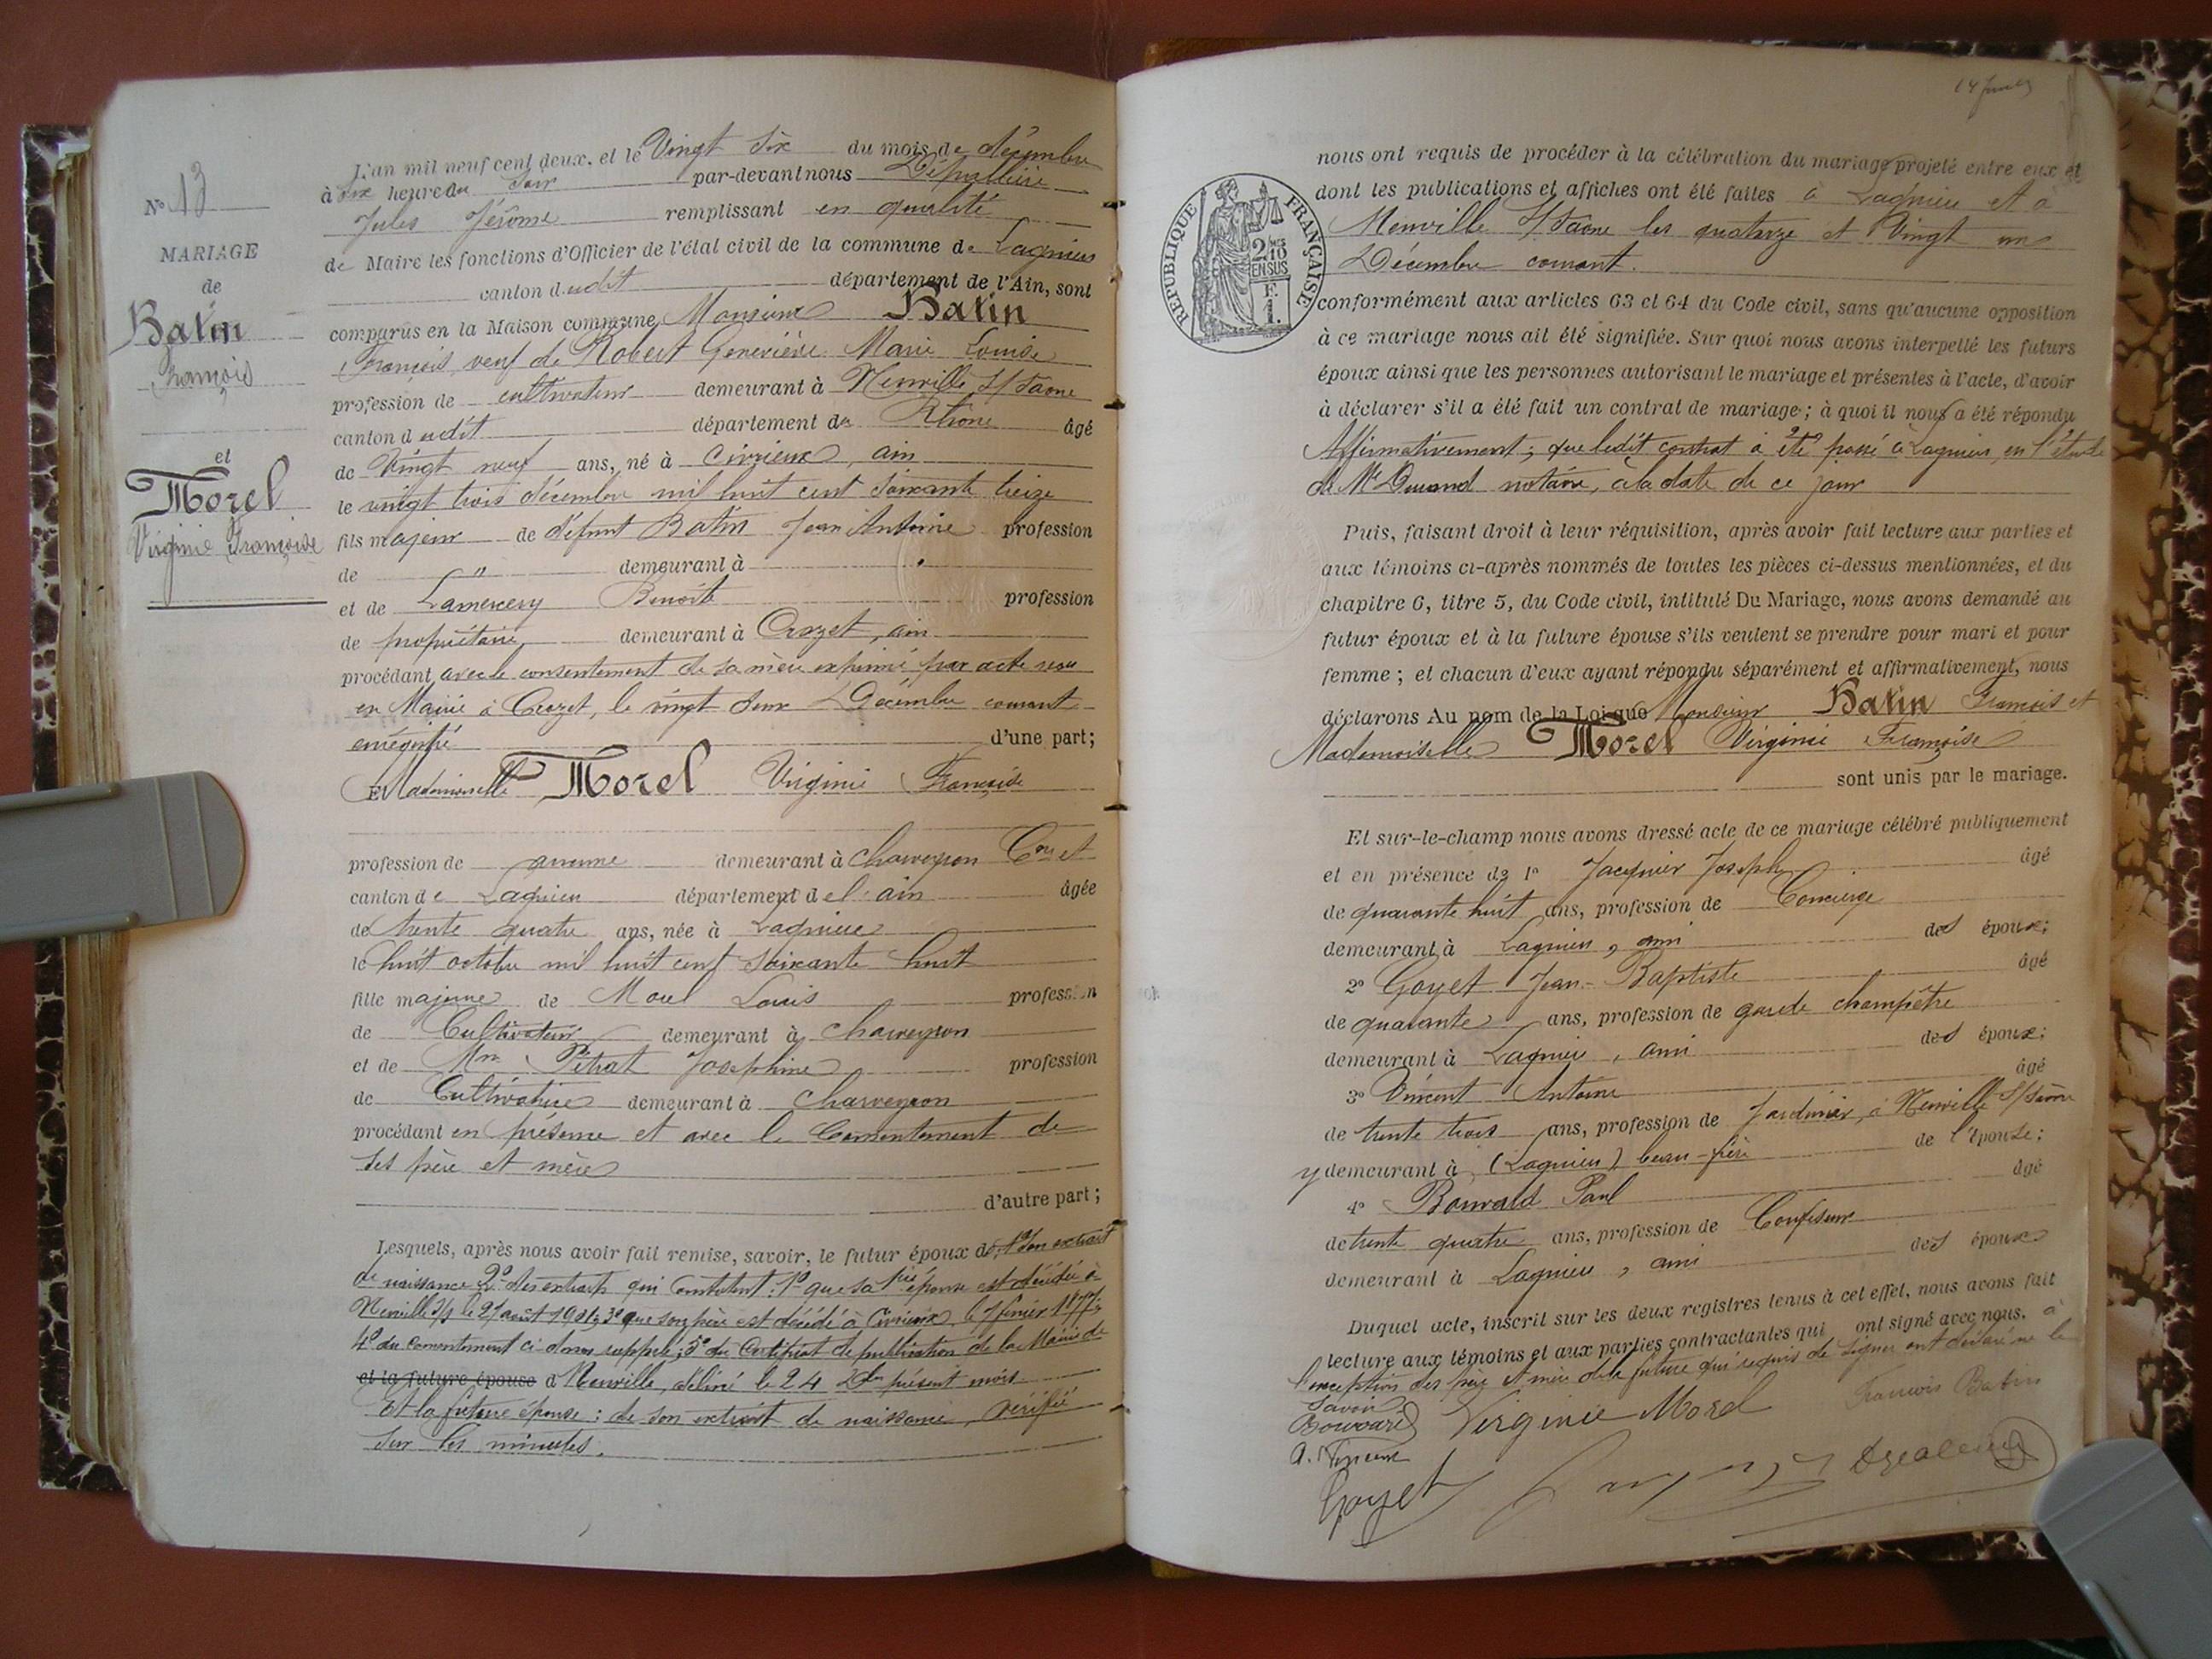 N° 13
MARIAGE
de
Batin
François
et
Morel
Virginie Françoise
L'an mil neuf cent deux, et le Vingt six du mois de décembre
à six heure du soir par-devant nous
Jules Jérôme remplissant en qualité
de Maire les fonctions d'Officier de l'état civil de la commune de Lagnieu
canton dudit département de l'Ain, sont
comparus en la Maison commune, Monsieur Batin
François veuf de Robert Geneviève Marie Louise
profession de cultivateur demeurant à Neuville s/ Saone
canton dudit département du Rhône âgé
de Vingt neuf ans, né à Civrieux, ain
le vingt trois décembre mil huit cent soixante treize
fils majeur de défunt Batin Jean Antoine profession
de " demeurant à
et de Lamercery Benoite profession
de propriétaire demeurant à Crozet, ain
procédant avec le consentement de sa mère exprimé par acte reçu
en Mairie à Crozet, le vingt deux Décembre courant
enregistré d'une part;
Et Mademoiselle Morel Virginie Françoise
profession de aucune demeurant à Charveyron Cne et
canton de Lagnieu département de l'ain âgée
de trente quatre ans, née à Lagnieu
le huit octobre mil huit cent soixante huit
fille majeure de Morel Louis profession
de Cultivateur demeurant à Charveyron
et de Mme Pétrat Joséphine profession
de Cultivatrice demeurant à Charveyron
procédant en présence et avec le Consentement de
ses père et mère
d'autre part;
Lesquels, après nous avoir fait remise, savoir, le futur époux de, 1° son extrait
de naissance 2° des extraits qui constatent: 1° que sa 1re épouse est décédée à
Neuville s/s le 27 août 1901; 3° que son père est décédé à Civrieux, le 7 février
4° du consentement ci-dessus rappelé; 5° du Certificat de publication de la Mairie de
et la future épouse d Neuville, délivré le 24 du présent mois
Et la future épouse: de son extrait de naissance, vérifié
sur les minutes.
REPUBLIQUE FRANÇAISE
2/10
EN SUS
F.
1.
nous ont requis de procéder à la célébration du mariage projeté entre eux et
dont les publications et affiches ont été faites à Lagnieu et à
Neuville s/ Saone les quatorze et Vingt un
Décembre courant.
conformément aux articles 63 et 64 du Code civil, sans qu'aucune opposition
à ce mariage nous ait été signifiée. Sur quoi nous avons interpellé les futurs
époux ainsi que les personnes autorisant le mariage et présentes à l'acte, d'avoir
à déclarer s'il a été fait un contrat de mariage; à quoi il nous a été répondu
Affirmativement; que ledit contrat a été passé à Lagnieu, en l'étude
de Me Durand notaire, à la date de ce jour
Puis, faisant droit à leur réquisition, après avoir fait lecture aux parties et
aux témoins ci-après nommés de toutes les pièces ci-dessus mentionnées, et du
chapitre 6, titre 5, du Code civil, intitulé Du Mariage, nous avons demandé au
futur époux et à la future épouse s'ils veulent se prendre pour mari et pour
femme; et chacun d'eux ayant répondu séparément et affirmativement, nous
déclarons Au nom de la Loi que Monsieur Batin François et
Mademoiselle Morel Virginie Françoise
sont unis par le mariage.
Et sur-le-champ nous avons dressé acte de ce mariage célébré publiquement
et en présence de 1° Jacquier Joseph âgé
de quarante huit ans, profession de Concierge
demeurant à Lagnieu, ami des époux;
2° Goyet Jean-Baptiste âgé
de quarante ans, profession de garde champêtre
demeurant à Lagnieu, ami des époux;
3° Vincent Antoine âgé
de trente trois ans, profession de Jardinier, à Neuville s/ Saone
y demeurant à (Lagnieu) beau-frère de l'épouse;
4° Paul âgé
de trente quatre ans, profession de Confiseur
demeurant à Lagnieu, ami des époux
Duquel acte, inscrit sur les deux registres tenus à cet effet, nous avons fait
lecture aux témoins et aux parties contractantes qui ont signé avec nous. à
l'exception des père et mère de la future qui requis de signer ont déclaré ne le
savoir.
Virginie Morel François Batin
A. Vincent
Goyet